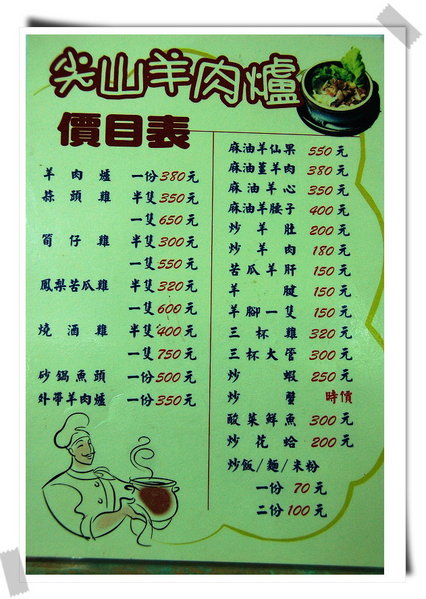 尖山羊肉爐
價目表
羊肉爐 一份380元
蒜頭雞 半隻350元
一隻650元
筍仔雞 半隻300元
一隻550元
鳳梨苦瓜雞 半隻320元
一隻600元
燒酒雞 半隻400元
一隻750元
砂鍋魚頭 一份500元
外帶羊肉爐 一份350元
麻油羊仙果 550元
麻油薑羊肉 380元
麻油羊心 350元
麻油羊腰子 400元
炒羊肚 200元
炒羊肉 180元
苦瓜羊肝 150元
羊腱 150元
羊腳一隻 150元
三杯雞 320元
三杯大管 300元
炒蝦 250元
炒蟹 時價
酸菜鮮魚 300元
炒花蛤 200元
炒飯/麵/米粉
一份 70元
二份 100元